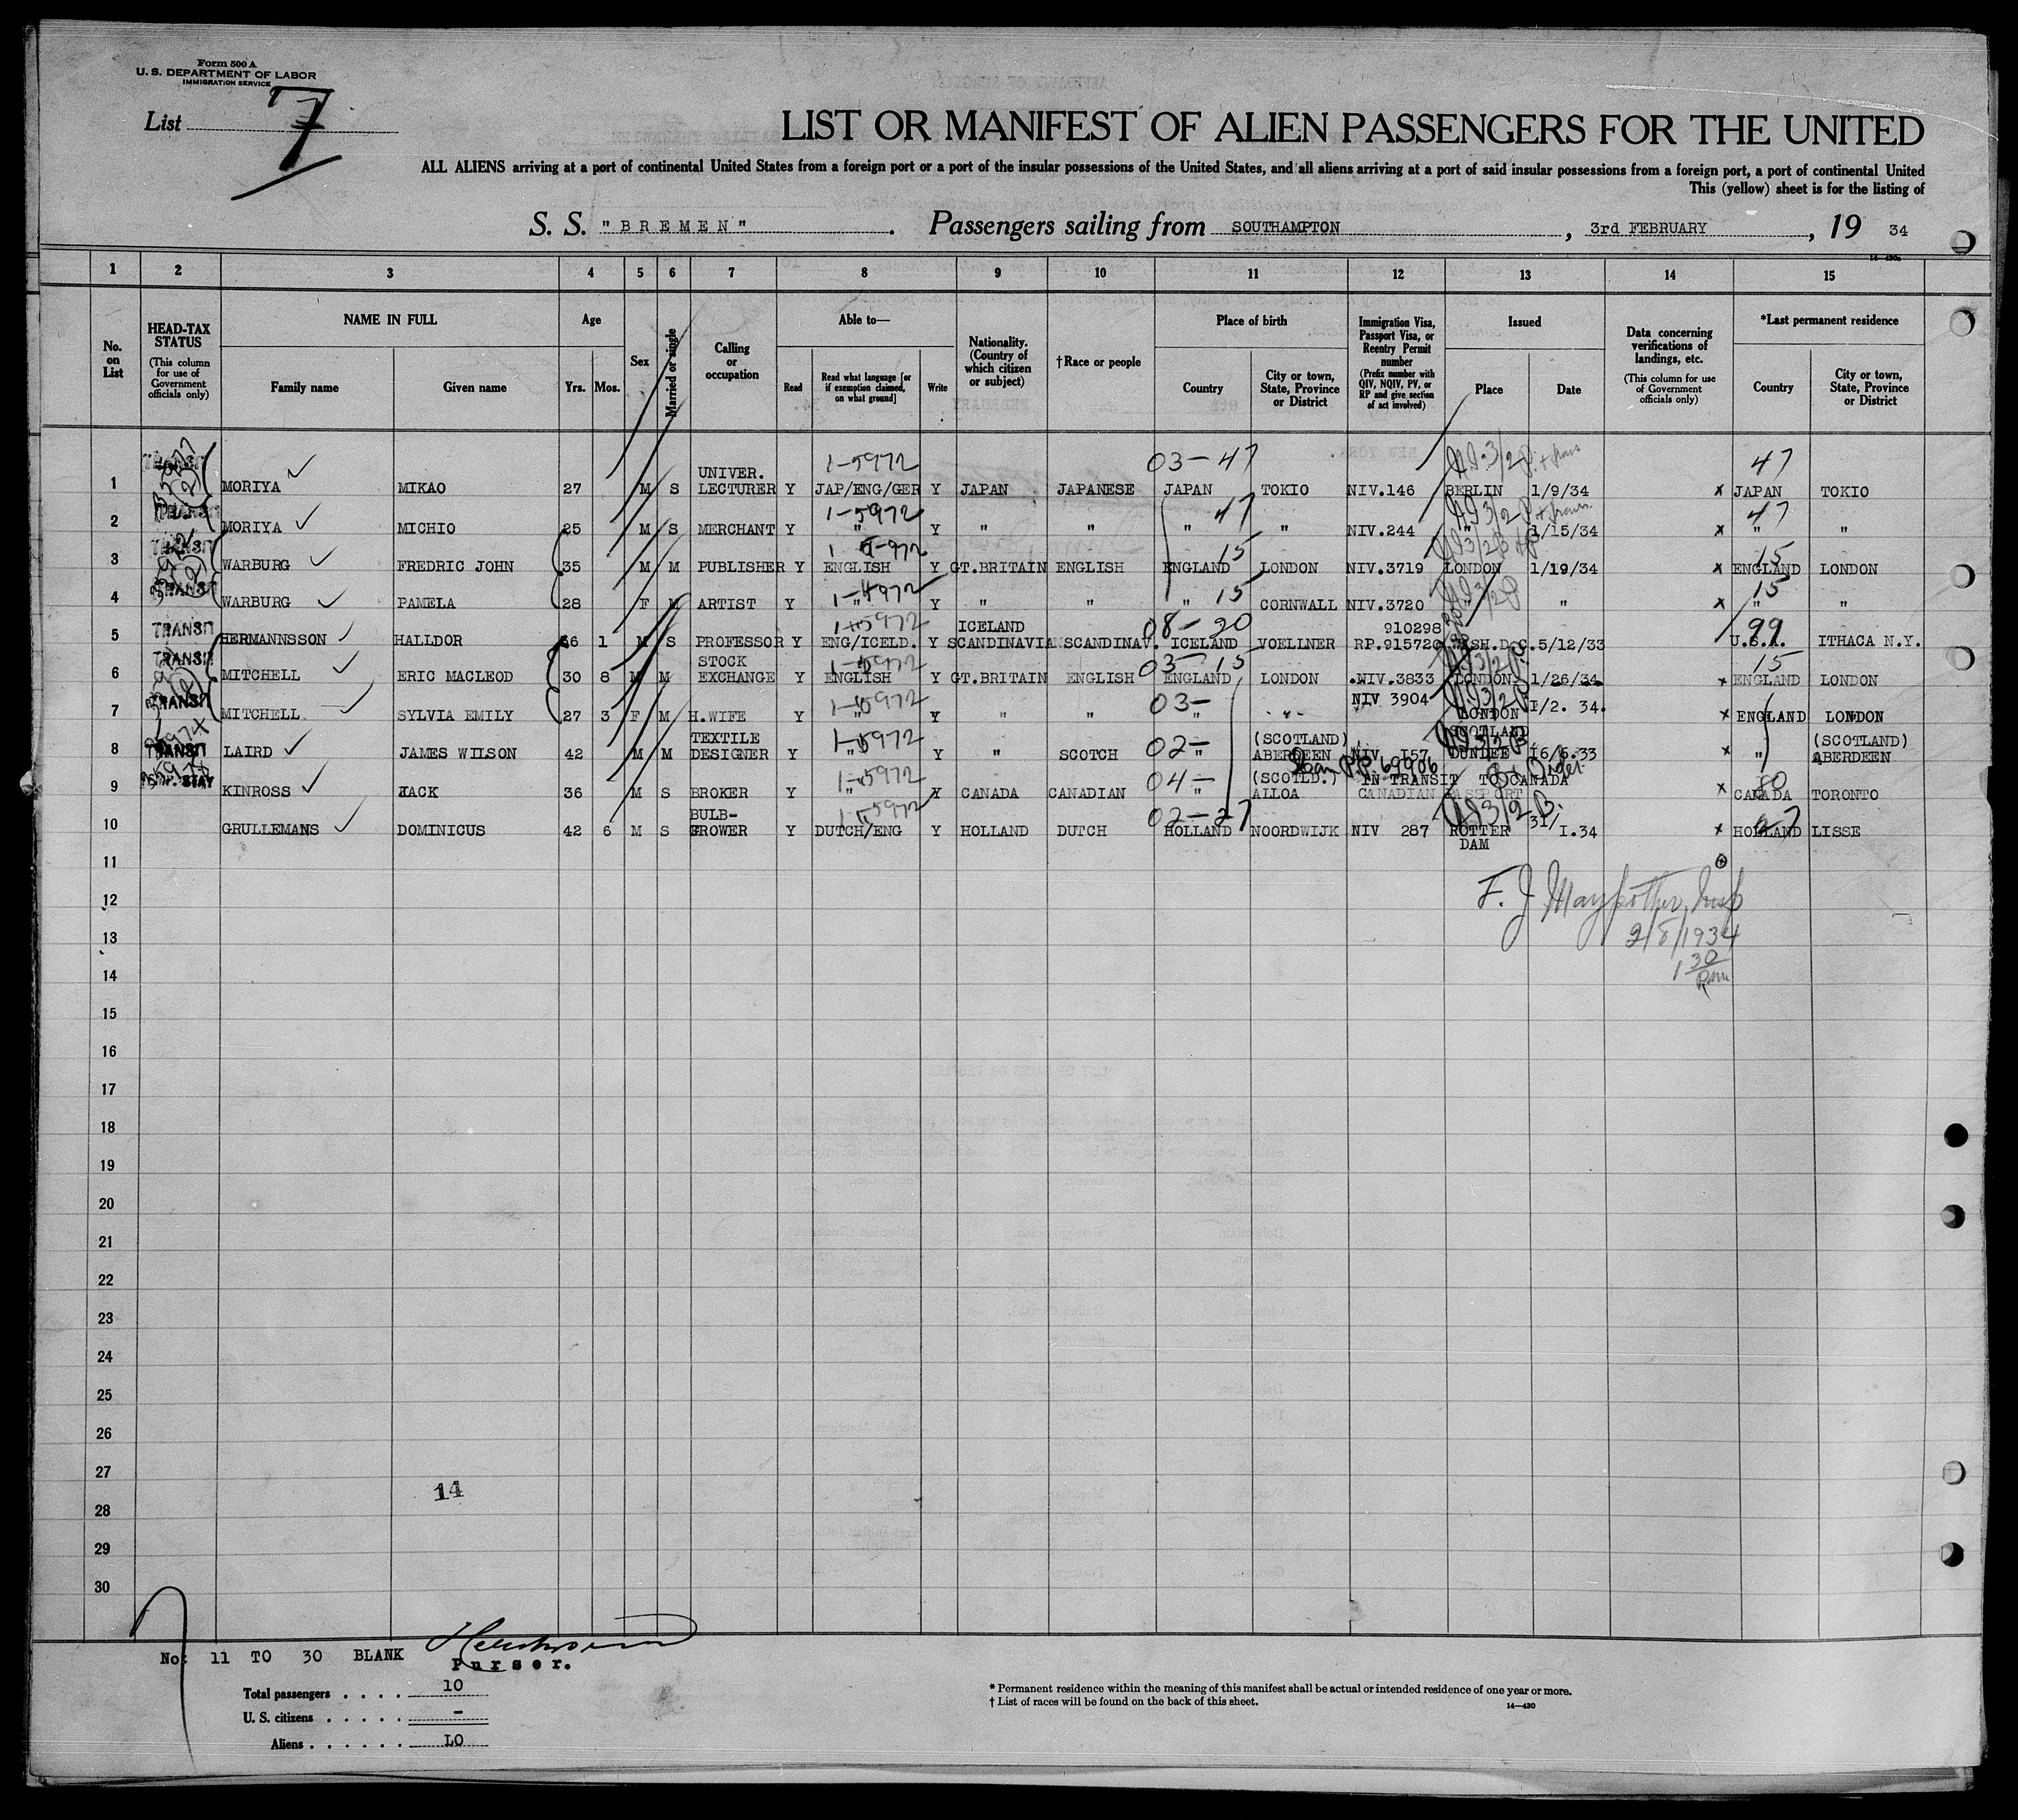 Form 500 A
U. S. DEPARTMENT OF LABOR
IMMIGRATION SERVICE
List 7
LIST OR MANIFEST OF ALIEN PASSENGERS FOR THE UNITED
ALL ALIENS arriving at a port of continental United States from a foreign port or a port of the insular possessions of the United States, and all aliens arriving at a port of said insular possessions from a foreign port, a port of continental United
This (yellow) sheet is for the listing of
S. S. "BREMEN". Passengers sailing from SOUTHAMPTON, 3rd FEBRUARY, 19 34
1 2 3 4 5 6 7 8 9 10 11 12 13 14 15
No. on List
HEAD-TAX STATUS
(This column for use of Government officials only)
NAME IN FULL
Family name Given name
Age
Yrs. Mos.
Sex
Married or single
Calling or occupation
Able to—
Read
Read what language [or if exemption claimed, on what ground]
Write
Nationality. (Country of which citizen or subject)
† Race or people
Place of birth
Country
City or town, State, Province or District
Immigration Visa, Passport Visa, or Reentry Permit number
(Prefix number with QIV, NQIV, PV, or RP and give section of act involved)
Issued
Place Date
Data concerning verifications of landings, etc.
(This column for use of Government officials only)
*Last permanent residence
Country
City or town, State, Province or District
1-5972 03-47 47
UNIVER.
1 MORIYA MIKAO 27 M S LECTURER Y JAP/ENG/GER Y JAPAN JAPANESE JAPAN TOKIO NIV.146 BERLIN 1/9/34 x JAPAN TOKIO
1-5972 47 47
2 TRANSIT MORIYA MICHIO 25 M S MERCHANT Y " Y " " " " NIV.244 " 1/15/34 x " "
1 5-972 15 15
3 TRANSIT WARBURG FREDRIC JOHN 35 M M PUBLISHER Y ENGLISH Y GT.BRITAIN ENGLISH ENGLAND LONDON NIV.3719 LONDON 1/19/34 x ENGLAND LONDON
1-4972 15 15
4 TRANSIT WARBURG PAMELA 28 F M ARTIST Y " Y " " " CORNWALL NIV.3720 " " x " "
1-5972 ICELAND 08-20 910298 99
5 TRANSIT HERMANNSSON HALLDOR 56 1 M S PROFESSOR Y ENG/ICELD. Y SCANDINAVIA SCANDINAV. ICELAND VOELLNER RP.915720 WASH.D.C. 5/12/33 U.S.A. ITHACA N.Y.
STOCK 1-5972 03-15 15
6 TRANSIT MITCHELL ERIC MACLEOD 30 8 M M EXCHANGE Y ENGLISH Y GT.BRITAIN ENGLISH ENGLAND LONDON NIV.3833 LONDON 1/26/34 x ENGLAND LONDON
1-5972 03- NIV 3904
7 TRANSIT MITCHELL SYLVIA EMILY 27 3 F M H.WIFE Y " Y " " " " LONDON 1/2. 34. x ENGLAND LONDON
TEXTILE 1-5972 02- (SCOTLAND) SCOTLAND (SCOTLAND)
8 TRANSIT LAIRD JAMES WILSON 42 M M DESIGNER Y " Y " SCOTCH " ABERDEEN NIV 157 DUNDEE 16/6.33 x " ABERDEEN
1-5972 04- (SCOTLD.) IN TRANSIT TO CANADA 80
9 STAY KINROSS JACK 36 M S BROKER Y " Y CANADA CANADIAN " ALLOA CANADIAN PASSPORT x CANADA TORONTO
BULB- 1-5972 02-27 31/ 27
10 GRULLEMANS DOMINICUS 42 6 M S GROWER Y DUTCH/ENG Y HOLLAND DUTCH HOLLAND NOORDWIJK NIV 287 ROTTER 1.34 x HOLLAND LISSE
DAM
11
12
F. J. Mayforther, Insp
13
2/8/1934
14
1 30 Pm
15
16
17
18
19
20
21
22
23
24
25
26
27
14
28
29
30
No: 11 TO 30 BLANK
Purser.
Total passengers . . . . 10
U. S. citizens . . . . . -
Aliens . . . . . . 10
* Permanent residence within the meaning of this manifest shall be actual or intended residence of one year or more.
† List of races will be found on the back of this sheet.
14—430